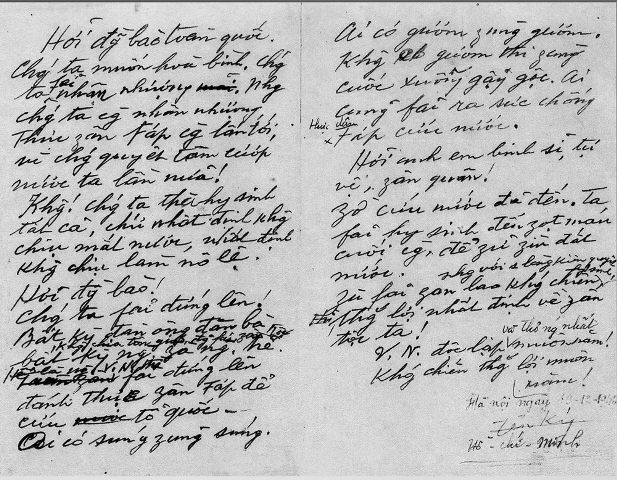 Hỡi đỹ bào toàn quốc.
Chg ta muốn hoà bình. Chg
ta fải nhân nhượng. Nhg
chg ta cg nhân nhượng
thực zân Fáp cg lấn tới,
vì chg quyết tâm cướp
nước ta lần nữa!
Khg! chg ta thà hy sinh
tất cả, chứ nhất định khg
chịu mất nước, nhất định
khg chịu làm nô lệ.
Hỡi đỹ bào!
Chg ta fải đứng lên!
Bất kỳ đàn ông đàn bà
bất kỳ ng già ng trẻ.
fải đứng lên
đánh thực zân Fáp để
cứu tổ quốc –
Ai có súng zùng súng.
Ai có gươm zùng gươm.
Khg có gươm thì zùng
cuốc xuổng gậy gộc. Ai
cũng fải ra sức chống
thực zân
Fáp cứu nước.
Hỡi anh em binh sĩ, tự
vệ, zân quân!
Zờ cứu nước đã đến. Ta
fải hy sinh đến zọt máu
cuối cg, để zữ zìn đất
nước.
Zù fải zan lao khg chiến
nhg với 1 lòng kiên quyết
thắg lợi nhất định về zân
tộc ta!
V.N. độc lập
và thốg nhất
muôn năm!
Khg chiến thắg lợi muôn
năm!
Hà nội ngày 19-12-1946
Hồ-chí-Minh